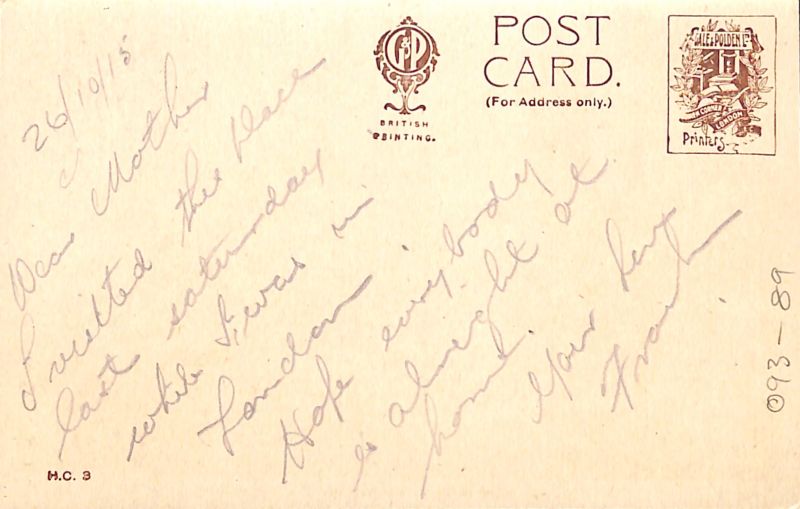 POST
CARD.
(For Address only.)
G&P
BRITISH
PRINTING.
GALE & POLDEN LTD
LONDON
Printers
26/10/15
Dear Mother
I visited this place
last saturday
while I was in
London.
Hope everybody
is alright at
home.
Your Son
Frank
H.C. 3
093-89